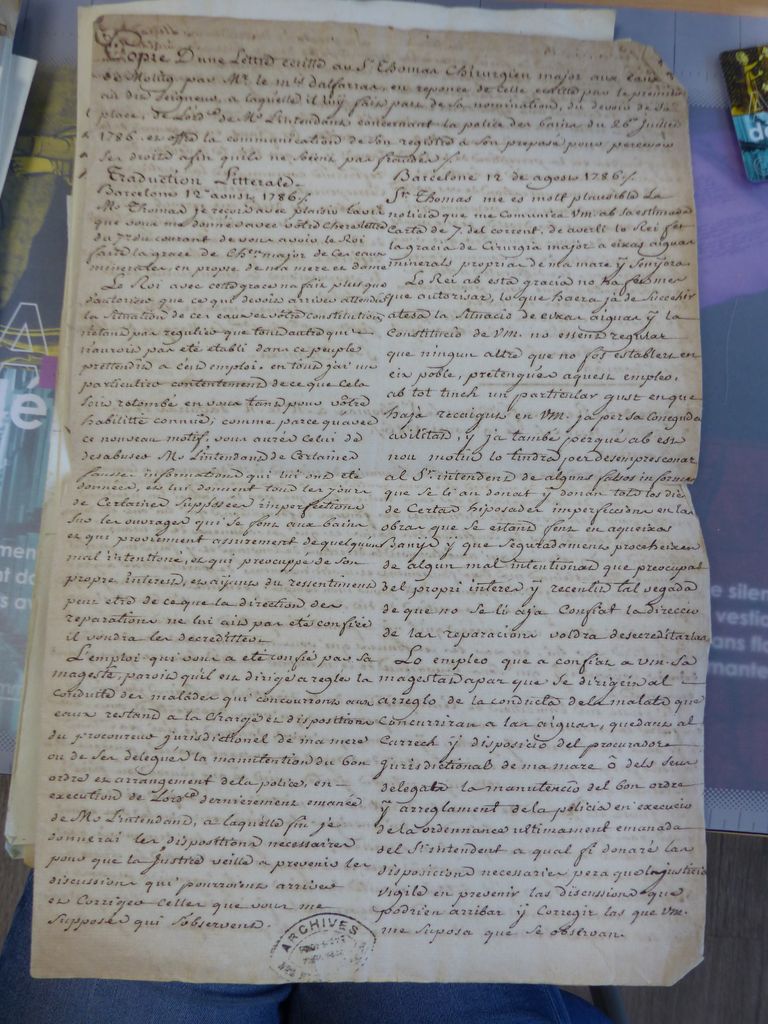 Copie D'une Lettre ecritte au Sr. Thomas Chirurgien major aux eaux
de Molitg par Mr. le mis Dalfarras, en reponce de celle ecritte par le premier
au dit Seigneur, a laquelle il luy fais part de sa nomination, du devoir de sa
place, de Lord.ce de Mr. Lintendant concernant la police des bains du 26e Juillet
1786. et offre la communication de son registre a son preposé pour percevoir
ses droits afin qu'ils ne soient pas fraudés ./.
Traduction Litterale.
Barcelone 12e aoust 1786 ./.
Mr. Thomas je reçois avec plaisir lavis
que vous me donné avec vôtre chere lettre
du 7e du courant de vous avoir le Roi
faitte la grace de Ch.en major de ces eaux
minerales, en propre de ma mere et dame
Le Roi avec cette grace na fait plus que
d'autoriser ce que devois arriver attendu
la situation de ces eaux et vôtre constitution
n'etant pas regulier que tout autre qui
n'auroit pas eté etabli dans ce peuple
prettendit a cest emploi. en tout j'ai un
particulier contentement de ce que cela
soie retombé en vous tant pour vôtre
habilitté connuë; comme parce qu'avec
ce nouveau motif, vous aurés celui de
desabuser Mr. Lintendand de Certaines
fausses informations qui lui ont eté
données, et lui donnent tout les jours
de Certaines Supposées imperfections
sur les ouvrages qui se font aux bains
et qui proviennent assurement de quelque
mal intentioné, et qui preocuppé de son
propre interest, et ayant du ressentiment
peut etre de ce que la direction des
reparations ne lui ait pas eté confiée
il voudra les decreditter.
L'emploi qui vous a eté confié par sa
magesté, paroit qu'il est dirigé a regler la
conduite des malades qui concourrons aux
eaux restand a la charge et disposition
du procureur jurisdictionel de ma mere
ou de ses delegués la manutention du bon
ordre et arrangement de la police, en
execution de Lord.ce dernierement emanée
de Mr. Lintendand, a laquelle fin je
donnerai les dispositions necessaires
pour que la Justice veille a prevenir les
discussions qui pourroient arriver
et Corriger celles que vous me
supposés qui s'observent.
Barcelone 12 de agost 1786 ./.
Sr. Thomas me es molt plausible La
noticia que me Comunica Vm. ab sa estimada
Carta de 7. del corrent. de averli lo Rei fet
la gracia de Cirurgia major a eixas aiguas
minerals propria de ma mare ÿ senÿora.
Lo Rei ab esta gracia no ha fet mes
que autorisar, lo que havia ja de succehir
atesa la situacio de eixas aiguas ÿ la
Constitucio de Vm. no essent regular
que ningun altre que no fos establert en
eix poble, pretengues aquest empleo.
ab tot tinch un particular gust en que
haja recaigut en Vm. ja per sa coneguda
abilitad, ÿ ja també perqué ab est
nou motiu lo tindra per desempresconar
al Sr. intendent de alguns falsos informes
que se li an donat ÿ donan tots los dies
de Certas hiposadas imperfeccions en las
obras que se estant fent en aqueixos
Banÿs ÿ que Seguradament proceheixen
de algun mal intentionat que preocupat
del propri interes ÿ recentit tal vegada
de que no se li aja Confiat la direccio
de las reparacions voldra desecreditarlas
Lo empleo que a confiat a Vm. Sa
magestat apar que se dirigein al
arreglo de la conducta dels malalts que
concurriran a las aiguas, quedant al
Carrech ÿ disposicio del procurador
jurisdictional de ma mare ô dels seus
delegats la manutencio del bon ordre
ÿ arreglament de la policia en execucio
de la ordennance ultimament emanada
del Sr. intendent a qual fi donaré las
disposicions necessaries pera que la justicia
vigile en prevenir las discussions que
podrien arribar ÿ Corregir las que Vm.
me suposa que se observan.
ARCHIVES